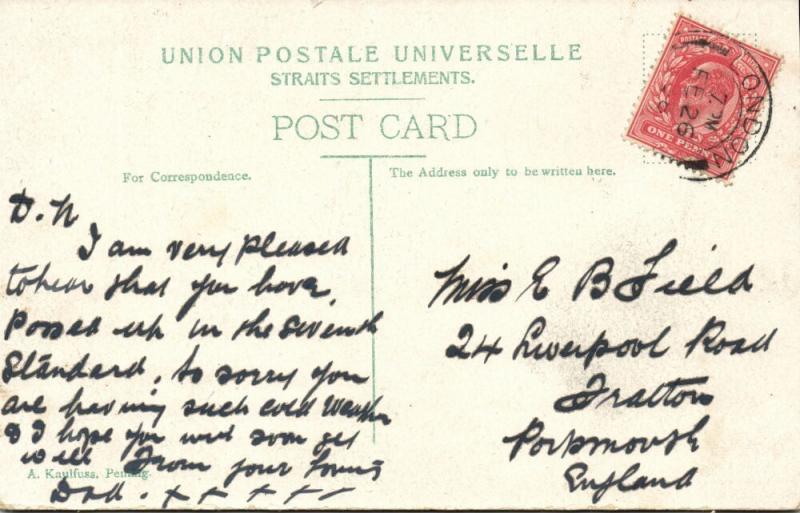 UNION POSTALE UNIVERSELLE
STRAITS SETTLEMENTS.
POST CARD
For Correspondence.
The Address only to be written here.
D.N
I am very pleased
to hear that you have
Passed up in the seventh
Standard, so sorry you
are having such cold Weather
& I hope you will soon get
well From your loving
Dad. x x x x x
A. Kaulfuss, Penang.
Miss E B Field
24 Liverpool Road
Fratton
Portsmouth
England
ONE PENNY
LONDON
7. PM
FE 26